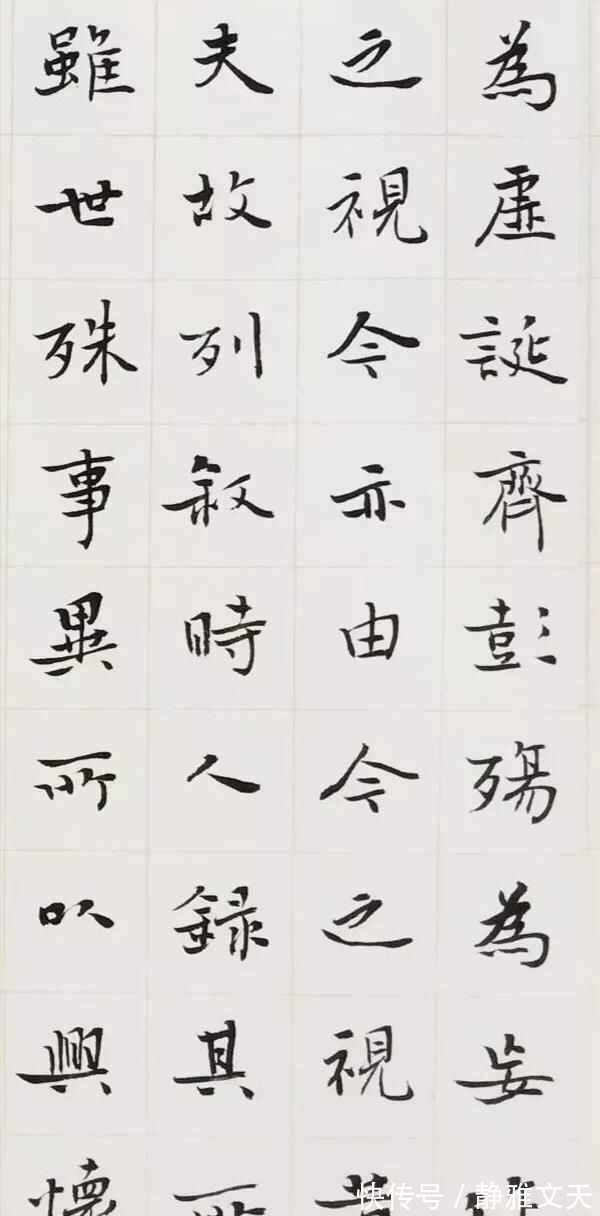 為虛誕齊彭殤為妄
之視今亦由今之視昔
夫故列叙時人錄其所
雖世殊事異所以興懷
快传号 / 静雅文天